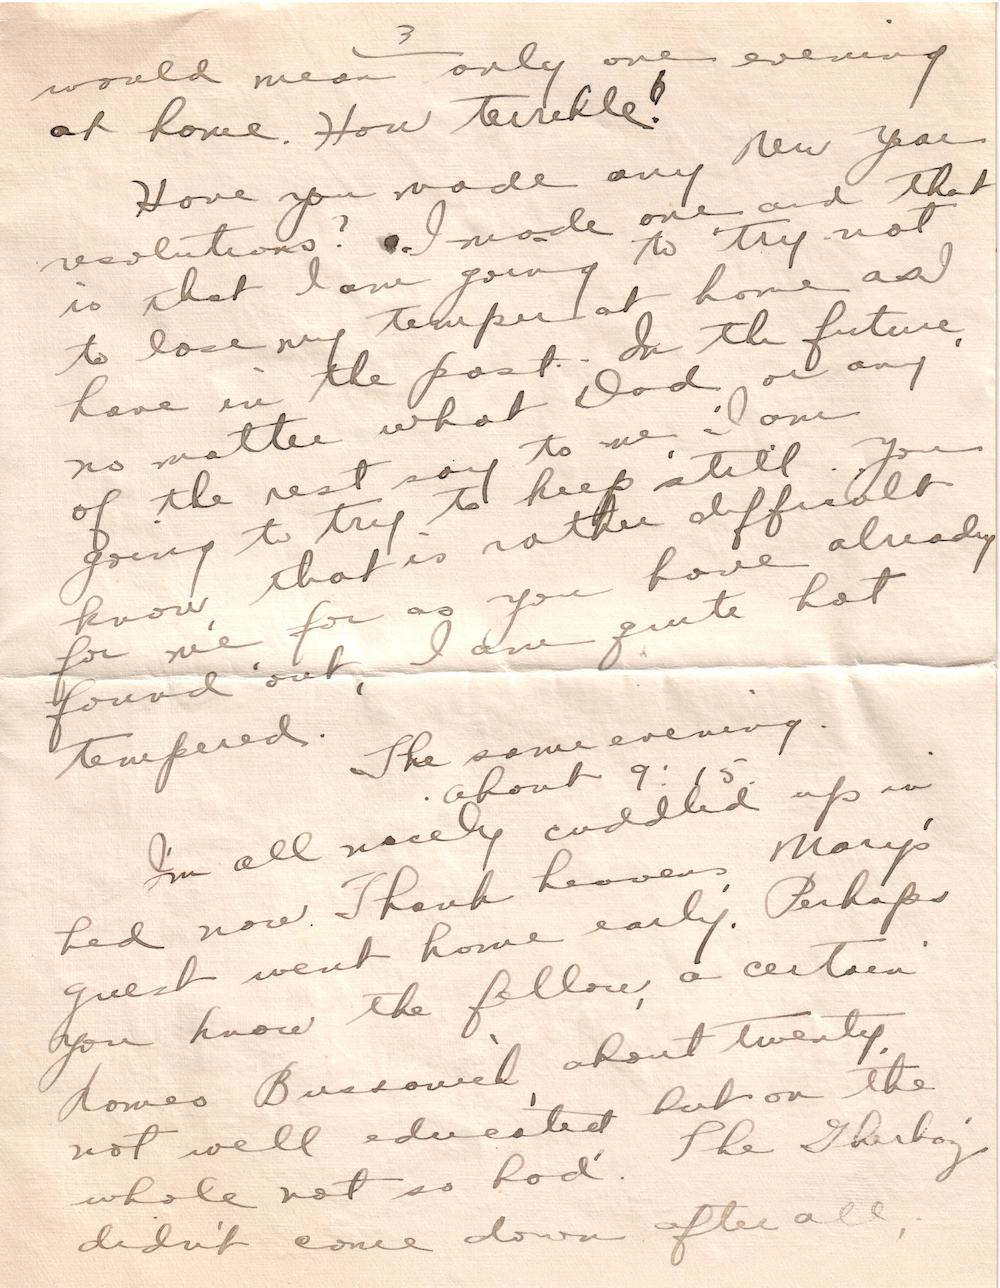 3
would mean only one evening
at home. How terrible!
Have you made any New Year
resolutions? I made one and that
is that I am going to try not
to lose my temper at home as I
have in the past. In the future,
no matter what Dad or any
of the rest say to me, I am
going to try to keep still. You
know, that is rather difficult
for me for as you have already
found out, I am quite hot
tempered.
The same evening.
about 9:15.
I'm all nicely cuddled up in
bed now. Thank heavens, Mary's
guest went home early. Perhaps
you know the fellow, a certain
about twenty,
not well educated but on the
whole not so bad. The
didn't come down after all,